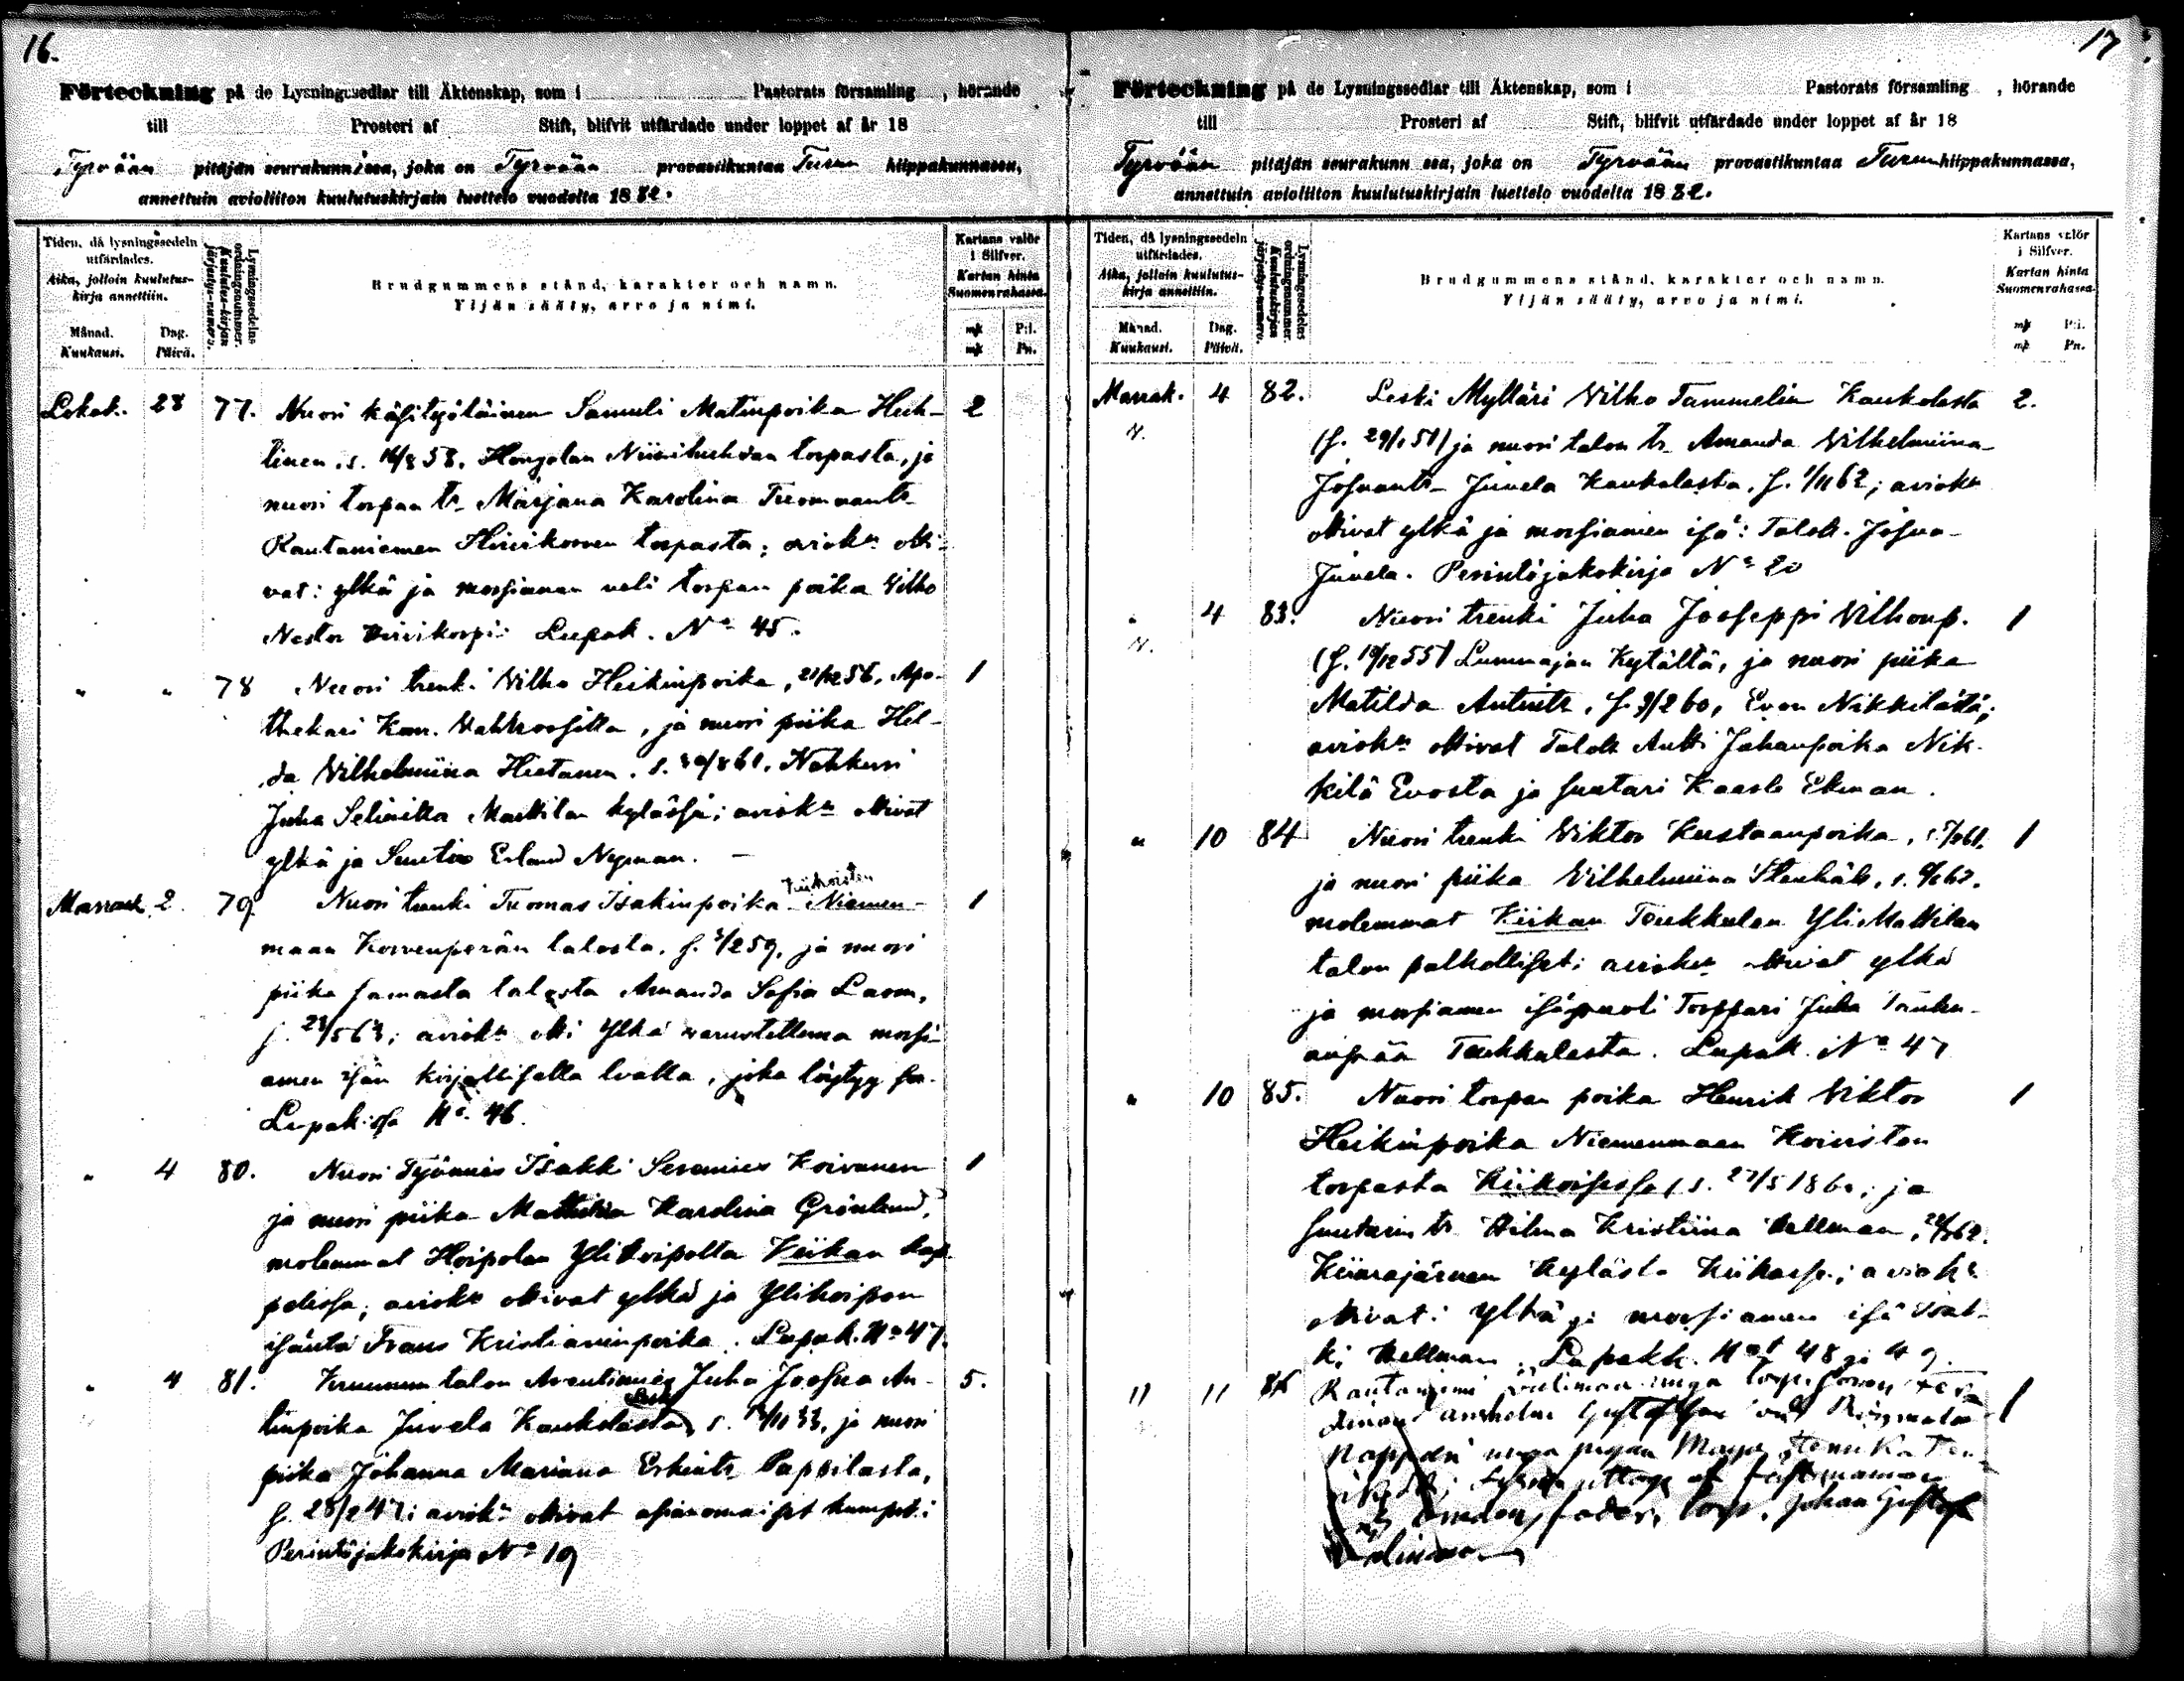 16.
Förteckning på de Lysningssedlar till Äktenskap, som i Pastorats församling , hörande
till Prosteri af Stift, blifvit utfärdade under loppet af år 18
Tyrvään pitäjän seurakunnissa, joka on Tyrvään provastikuntaa Turun hiippakunnassa,
annettuin avioliiton kuulutuskirjain luettelo vuodelta 1882.
Tiden, då lysningssedeln
utfärdades.
Aika, jolloin kuulutus-
kirja annettiin.
Månad.
Kuukausi.
Dag.
Päivä.
Lysningssedelns
ordningsnummer.
Kuulutus-kirjan
järjesty-numero.
Brudgummens stånd, karakter och namn.
Yljän sääty, arvo ja nimi.
Kartans valör
i Silfver.
Kartan hinta
Suomenrahassa.
mk P:i.
mk Pn.
Lokak. 28 77. Nuori käsityöläinen Samuli Matinpoika Huh- 2
tinen, s. 16/8 58, Hongolan torpasta, ja
nuori torpan tr. Marjana Karolina Tuomaantr
Rautaniemen Hirvikorven torpasta; aviok:n otti-
vat: ylkä ja morsiamen veli torpan poika Vilho
Nestor Hirvikorpi. Lupak. No 45.
" " 78 Nuori trenki Vilho Heikinpoika, 21/12 56, Apo- 1
thekari Kon. , ja nuori piika Hel-
da Vilhelmiina Hietanen, s. 30/8 61, Nahkuri
Juha Markkilan kylässä; aviok:n ottivat
ylkä ja Suutari Erland Nyman. —
Kiikoisten
Marrask. 2. 79. Nuori trenki Tuomas Isakinpoika Niemen- 1
maan Korvenperän talosta, s. 3/2 59, ja nuori
piika samasta talosta Amanda Sofia Laom,
s. 28/5 63; aviok:n otti Ylkä varustettuna morsi-
amen isän kirjallisella luvalla, joka löytyy
Lupak:ssa No. 46.
" 4 80. Nuori Työmies Isakki Seremies Koivunen 1
ja nuori piika Karolina Grönlund,
molemmat Hoipolan Ylihoipolta Kiikan kap-
pelissa; aviok:n ottivat ylkä ja Ylihoipon
isäntä Frans Kristianinpoika. Lupak. No 47.
" 4 81. Kruunun talon Arentimies Juha Joosua An- 5.
Leski
tinpoika Juvela Kaukolasta, s. 12/11 33, ja nuori
piika Johanna Mariana Erkintr. Pappilasta,
s. 28/2 47; aviok:n ottivat asianomaiset kumpi:
Perintöjakokirja No 19
17
Förteckning på de Lysningssedlar till Äktenskap, som i Pastorats församling , hörande
till Prosteri af Stift, blifvit utfärdade under loppet af år 18
Tyrvään pitäjän seurakunn ssa, joka on Tyrvään provastikuntaa Turun hiippakunnassa,
annettuin avioliiton kuulutuskirjain luettelo vuodelta 1882.
Tiden, då lysningssedeln
utfärdades.
Aika, jolloin kuulutus-
kirja annettiin.
Månad.
Kuukausi.
Dag.
Päivä.
Lysningssedelns
ordningsnummer.
Kuulutuskirjan
järjesty-numero.
Brudgummens stånd, karakter och namn.
Yljän sääty, arvo ja nimi.
Kartans valör
i Silfver.
Kartan hinta
Suomenrahassa.
mk P:i.
mk Pn.
Marrask. 4 82. Leski Mylläri Vilho Tammelin Kaukolasta 2.
N. (s. 29/1 51) ja nuori talon tr. Amanda Vilhelmiina
Josuantr. Juvela Kaukolasta, s. 1/11 62; aviok:n
ottivat ylkä ja morsiamen isä: Talok. Josua
Juvela. Perintöjakokirja No 20
" 4 83. Nuori trenki Juha Jooseppi Vilhonp. 1
N. (s. 19/12 55) Lummajan Kytältä, ja nuori piika
Matilda Antintr, s. 9/2 60, Evon Nikkilästä;
aviok:n ottivat Talok Antti Juhanpoika Nik-
kilä Evosta ja suutari Kaarlo Ekman.
" 10 84 Nuori trenki Viktor Kustaanpoika, s. 61, 1
ja nuori piika Vilhelmiina , s. 62,
molemmat Kiikan Toukkulan Yli Mattilan
talon palkolliset; aviok:n ottivat ylkä
ja morsiamen isäpuoli Torppari Juha
Toukkulasta. Lupak. No 47
" 10 85. Nuori torpan poika Henrik Viktor 1
Heikinpoika Niemenmaan Koiviston
torpasta Kiikoisissa, s. 27/5 1860; ja
suutarin tr. Hilma Kristiina Hellman,
Kiimajärven kylästä Kiikassa; aviok:n
ottivat: Ylkä ja morsiamen isä Isak-
ki Hellman. Lupakk. Not 48 ja 49.
" 11 86 Rautaniemi unga 1
Gustafsson
unga pigan Maja
af fästmannen
fader, Torp. Johan Gustaf